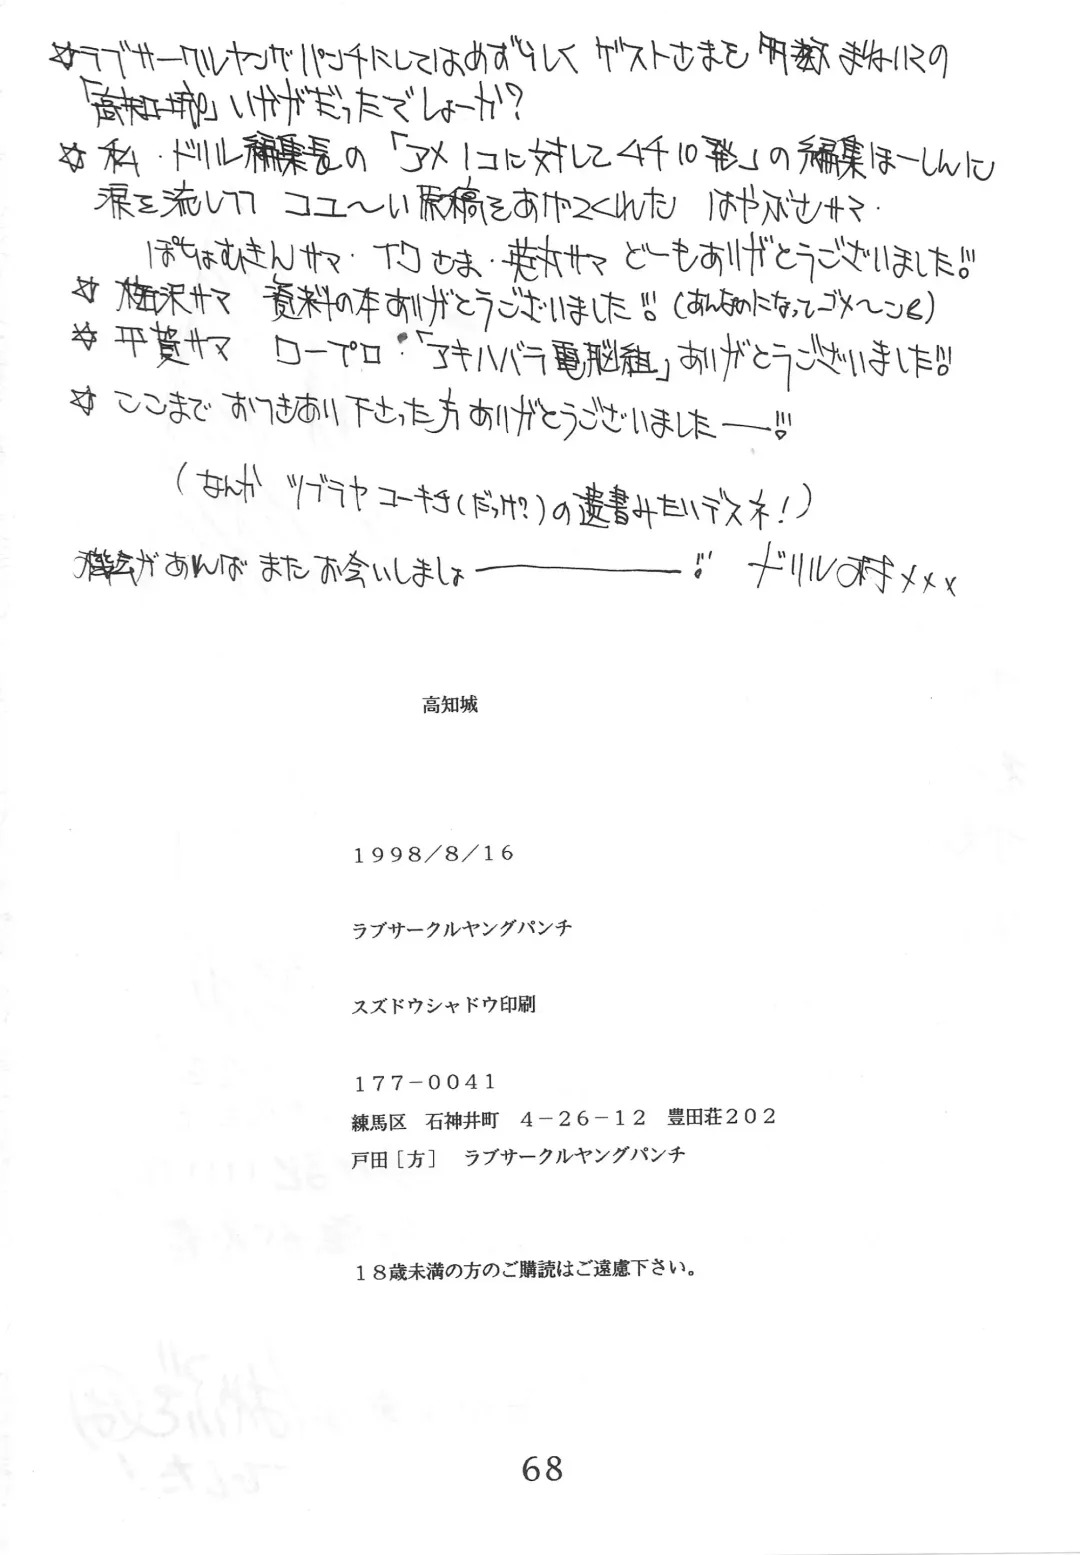 ☆ラブサークルヤングパンチにしてはめずらしく ゲストさまを多数まねいての
「高知城」いかがだったでしょーか?
☆私・ドリル編集長の「アメ1コに対してムチ10発」の編集ほーしんに
涙を流しつつ コユ〜い原稿をあげてくれた はやぶサマ・
ぽちょむきんサマ・ さま・ サマ どーもありがとうございました!!
☆梅沢サマ 資料の本ありがとうございました!!(あんなのになってゴメ〜ン)
☆平賀サマ ロープロ・「アキハバラ電脳組」ありがとうございました!!
☆ここまでおつきあい下さった方ありがとうございました——!!
(なんか ツブラヤコーキチ(だっけ?)の遺書みたいデスネ!)
機会があればまたお会いしましょ————!! ドリル村×××
高知城
1998/8/16
ラブサークルヤングパンチ
スズドウシャドウ印刷
177−0041
練馬区 石神井町 4−26−12 豊田荘202
戸田[方] ラブサークルヤングパンチ
18歳未満の方のご購読はご遠慮下さい。
68